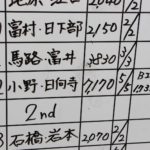 富村・日下部 2150 2/2
馬路・富井 3830 3/3
小野・日向寺 7170 5/5
2nd
石橋・岩本 2070 2/2